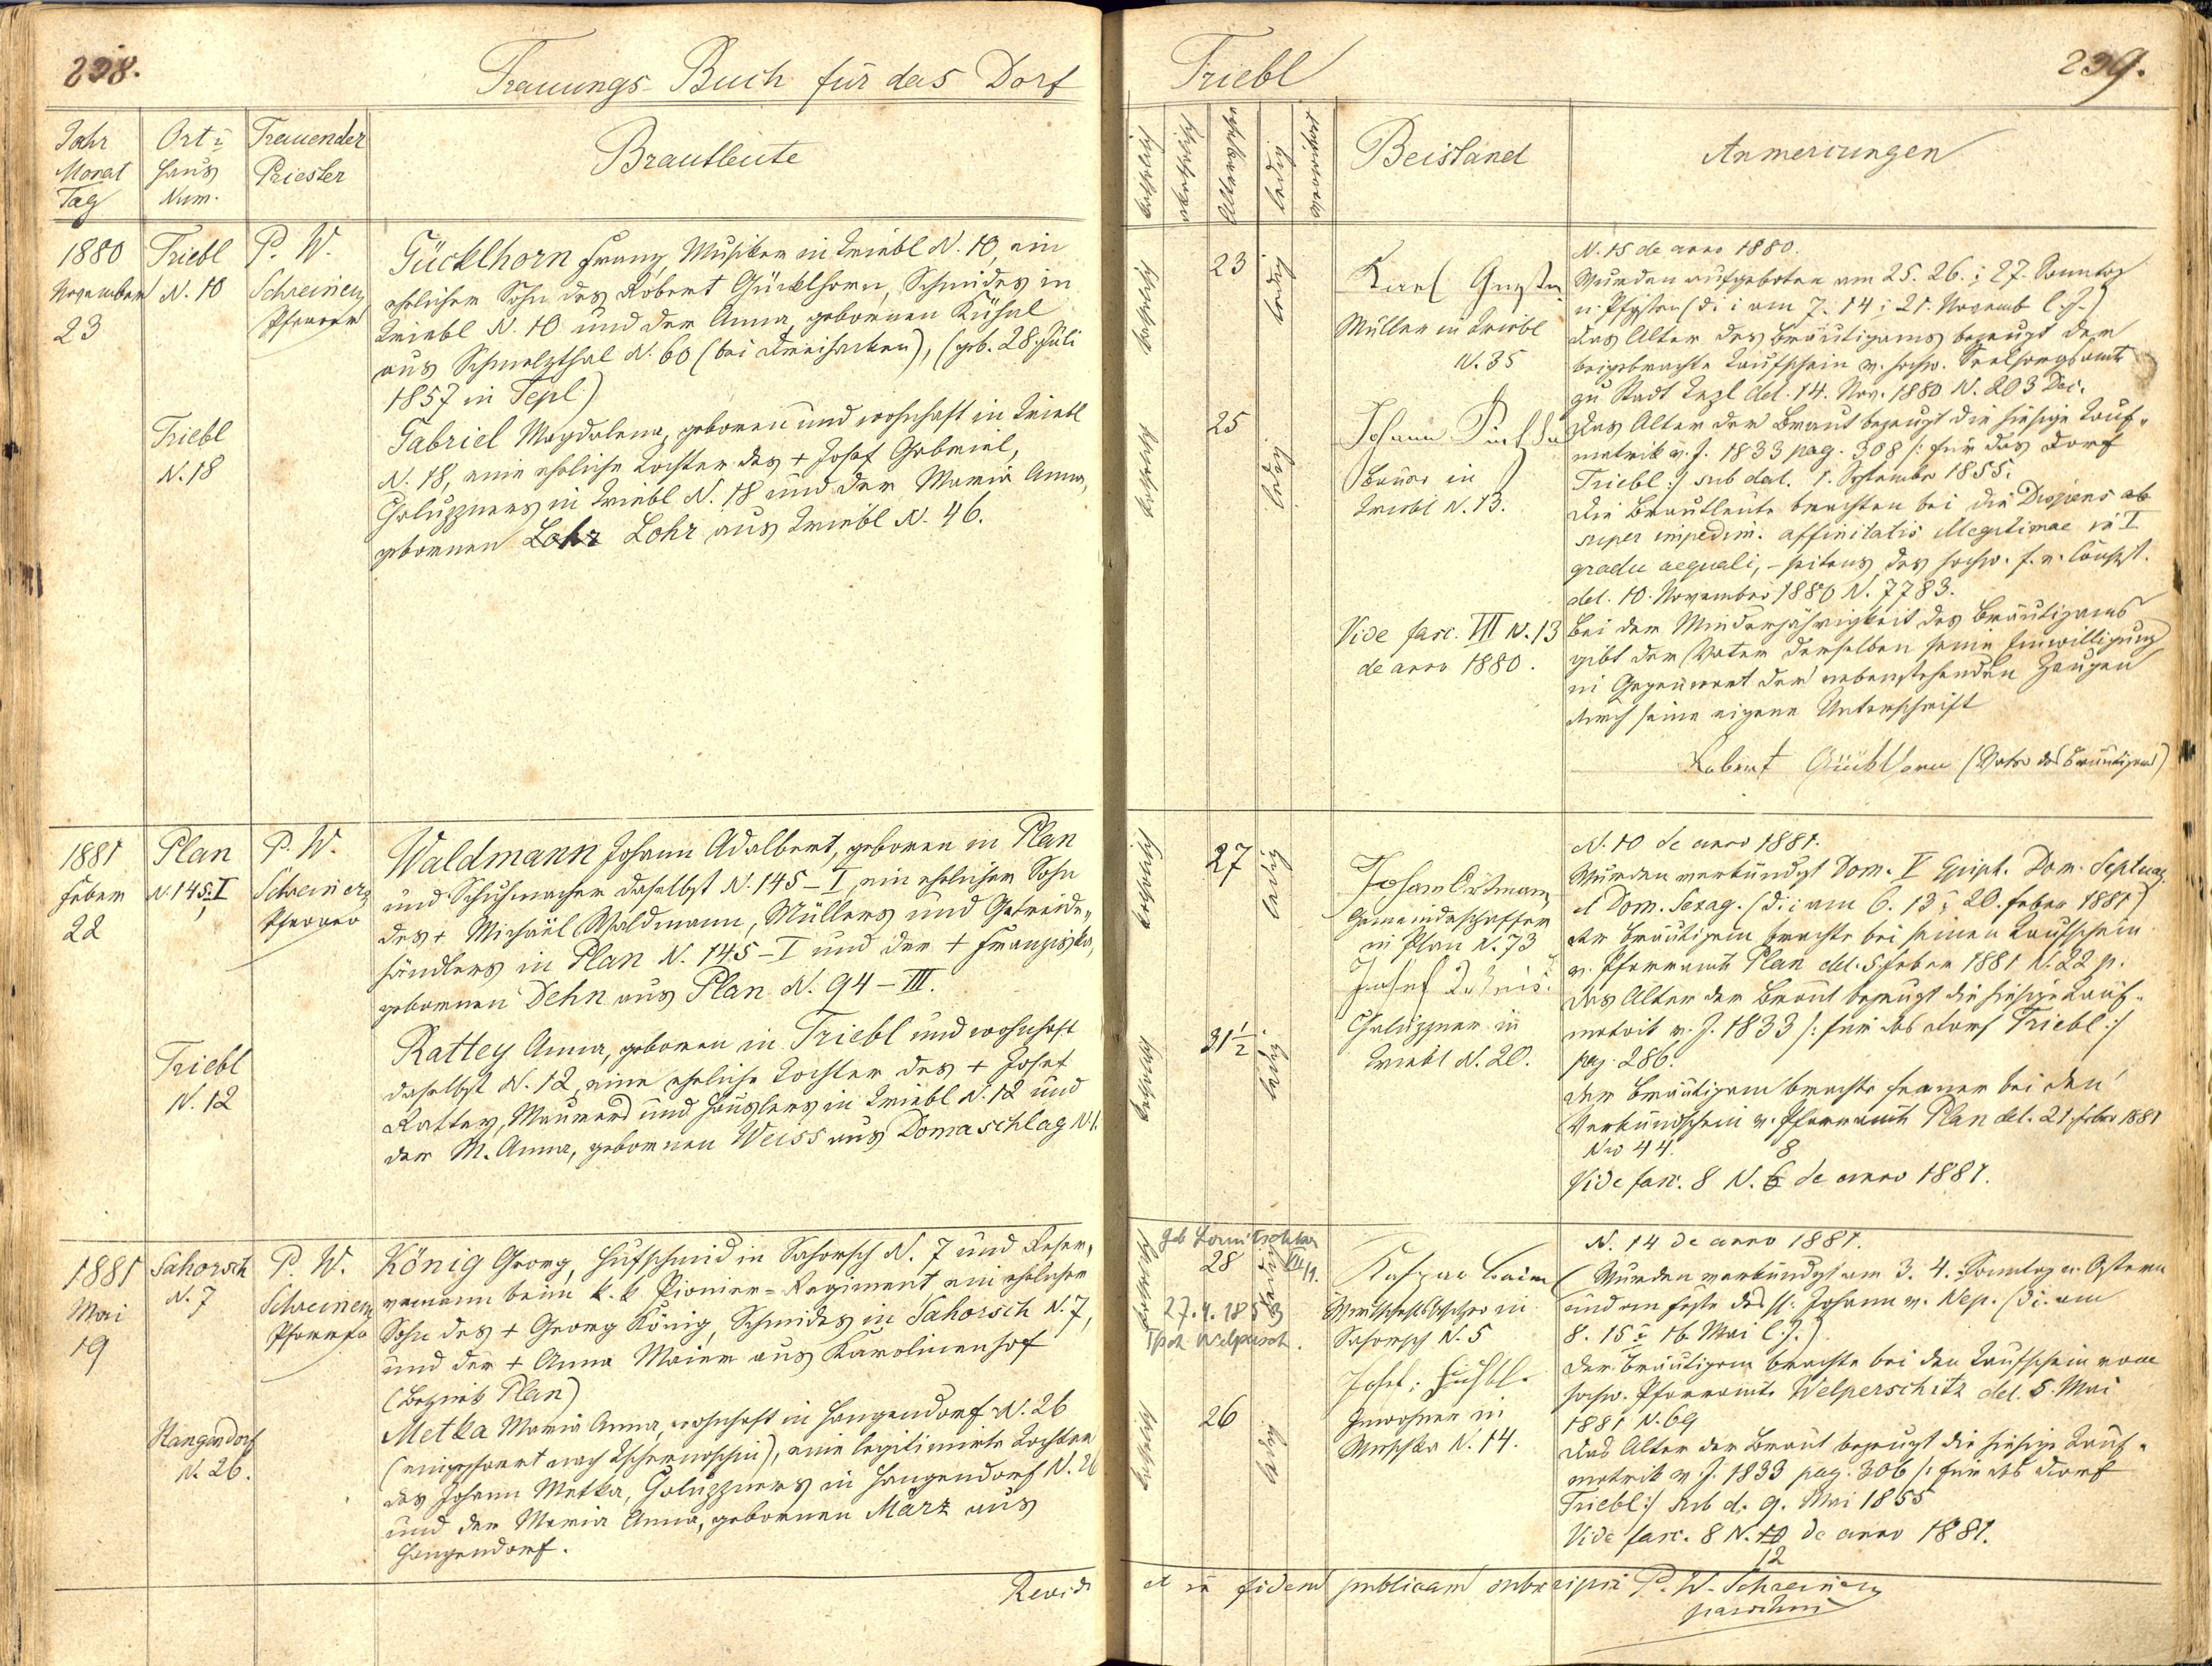 238.
Trauungs-Buch für das Dorf
Triebl
239.
Jahr
Monat
Tag
Ort u
Haus
Num.
Trauender
Priester
Brautleute
katholisch
akatholisch
Altersjahre
ledig
verwitwet
Beistand
Anmerkungen
1880
November
23
Triebl
N. 10
P. W.
Schreiner
Pfarrer
Gücklhorn Franz, Musiker in Triebl N. 10, ein
ehelicher Sohn des Robert Gücklhorn, Schmides in
Triebl N. 10 und der Anna, gebornen Kühnl
aus Schmelzthal N. 60 (bei Dreihacken), (geb. 28. Juli
1857 in Tepl)
Triebl
N. 18
Gabriel Magdalena, geboren und wohnhaft in Triebl
N. 18, eine eheliche Tochter des + Josef Gabriel,
Chaluppners in Triebl N. 18 und der Maria Anna,
gebornen Lohr Lohr aus Triebl N. 46.
katholisch
23
ledig
katholisch
25
ledig
Karl
Müller in Triebl
N. 35
Johann
Bauer in
Triebl N. 13.
Vide fasc. VII N. 13
de anno 1880.
N. 15 de anno 1880.
Wurden aufgeboten am 25. 26. u 27. Sonntag
n. Pfgsten (d. i. am 7. 14 u 21. Novemb l. J.)
Das Alter des Bräutigams bezeugt der
beigebrachte Taufschein v. hochw. Seelsorgsamte
zu Stadt Tepl del. 14. Nov. 1880 N. 203 Dec.
Das Alter der Braut bezeugt die hiesige Tauf-
matrik v. J. 1833 pag. 308 /: für das Dorf
Triebl :/ sub dat. 1. September 1855.
Die Brautleute brachten bei die Dispens ab
super impedim. affinitatis illegitimae in I
gradu aequali, - seitens des hochw. f. e. Consist.
del. 10. November 1880 N. 7783.
Bei der Minderjährigkeit des Bräutigams
gibt der Vater demselben seine Einwilligung
in Gegenwart der nebenstehenden Zeugen
durch seine eigene Unterschrift
Robert Gücklhorn (Vater des Bräutigams)
1881
Feber
22
Plan
N. 145-I
P. W.
Schreiner
Pfarrer
Waldmann Johann Adalbert, geboren in Plan
und Schuhmacher daselbst N. 145-I, ein ehelicher Sohn
des + Michael Waldmann, Müllers und Getreide-
händlers in Plan N. 145-I und der + Franziska,
gebornen Dehn aus Plan N. 94-III.
Triebl
N. 12
Rattey Anna, geboren in Triebl und wohnhaft
daselbst N. 12, eine eheliche Tochter des + Josef
Rattey, Maurers und Häuslers in Triebl N. 12 und
der M. Anna, gebornen Weiss aus Domaschlag N. 1.
katholisch
27
ledig
katholisch
31 1/2
ledig
Johann Ortmann
Gemeindeschaffer
in Plan N. 73
Josef
Chaluppner in
Triebl N. 20.
N. 10 de anno 1881.
Wurden verkündigt Dom. V Epiph. Dom. Septuag.
et Dom. Sexag. (d. i. am 6. 13 u 20. Feber 1881)
Der Bräutigam brachte bei seinen Taufschein
v. Pfarramte Plan del. 5. Feber 1881 N. 22 p.
Das Alter der Braut bezeugt die hiesige Tauf-
matrik v. J. 1833 /: für das Dorf Triebl :/
pag. 286.
Der Bräutigam brachte ferner bei den
Verkündschein v. Pfarramte Plan del. 21. Feber 1881
Nro 44.
8
Vide fasc. 8 N. 6 de anno 1881.
1881
Mai
19
Sahorsch
N. 7
P. W.
Schreiner
Pfarrer
König Georg, Hufschmid in Sahorsch N. 7 und Reser-
vemann beim k. k. Pionier-Regiment, ein ehelicher
Sohn des + Georg König, Schmides in Sahorsch N. 7,
und der + Anna Maier aus Karolinenhof
(Bezirk Plan)
Hangendorf
N. 26.
Metka Maria Anna, wohnhaft in Hangendorf N. 26
(eingepfarrt nach Tschernoschin), eine legitimirte Tochter
des Johann Metka, Chaluppners in Hangendorf N. 26
und der Maria Anna, gebornen März aus
Hangendorf.
katholisch
28
ledig
27.4.1853
katholisch
26
ledig
Kaspar
Wirtschaftsbesitzer in
Sahorsch N. 5
Josef
Inwohner in
N. 14.
N. 14 de anno 1881.
Wurden verkündigt am 3. 4. Sonntag n. Ostern
und am Feste des hl. Johann v. Nep. (d. i. am
8. 15 u 16. Mai l. J.)
Der Bräutigam brachte bei den Taufschein vom
hochw. Pfarramte Welperschitz del. 5. Mai
1881 N. 69
Das Alter der Braut bezeugt die hiesige Tauf-
matrik v. J. 1833 pag. 306 /: für das Dorf
Triebl :/ sub d. 9. Mai 1855
Vide fasc. 8 N. 10 de anno 1881.
12
Revidi
et in fidem publicam subscripsi P. W. Schreiner
parochus